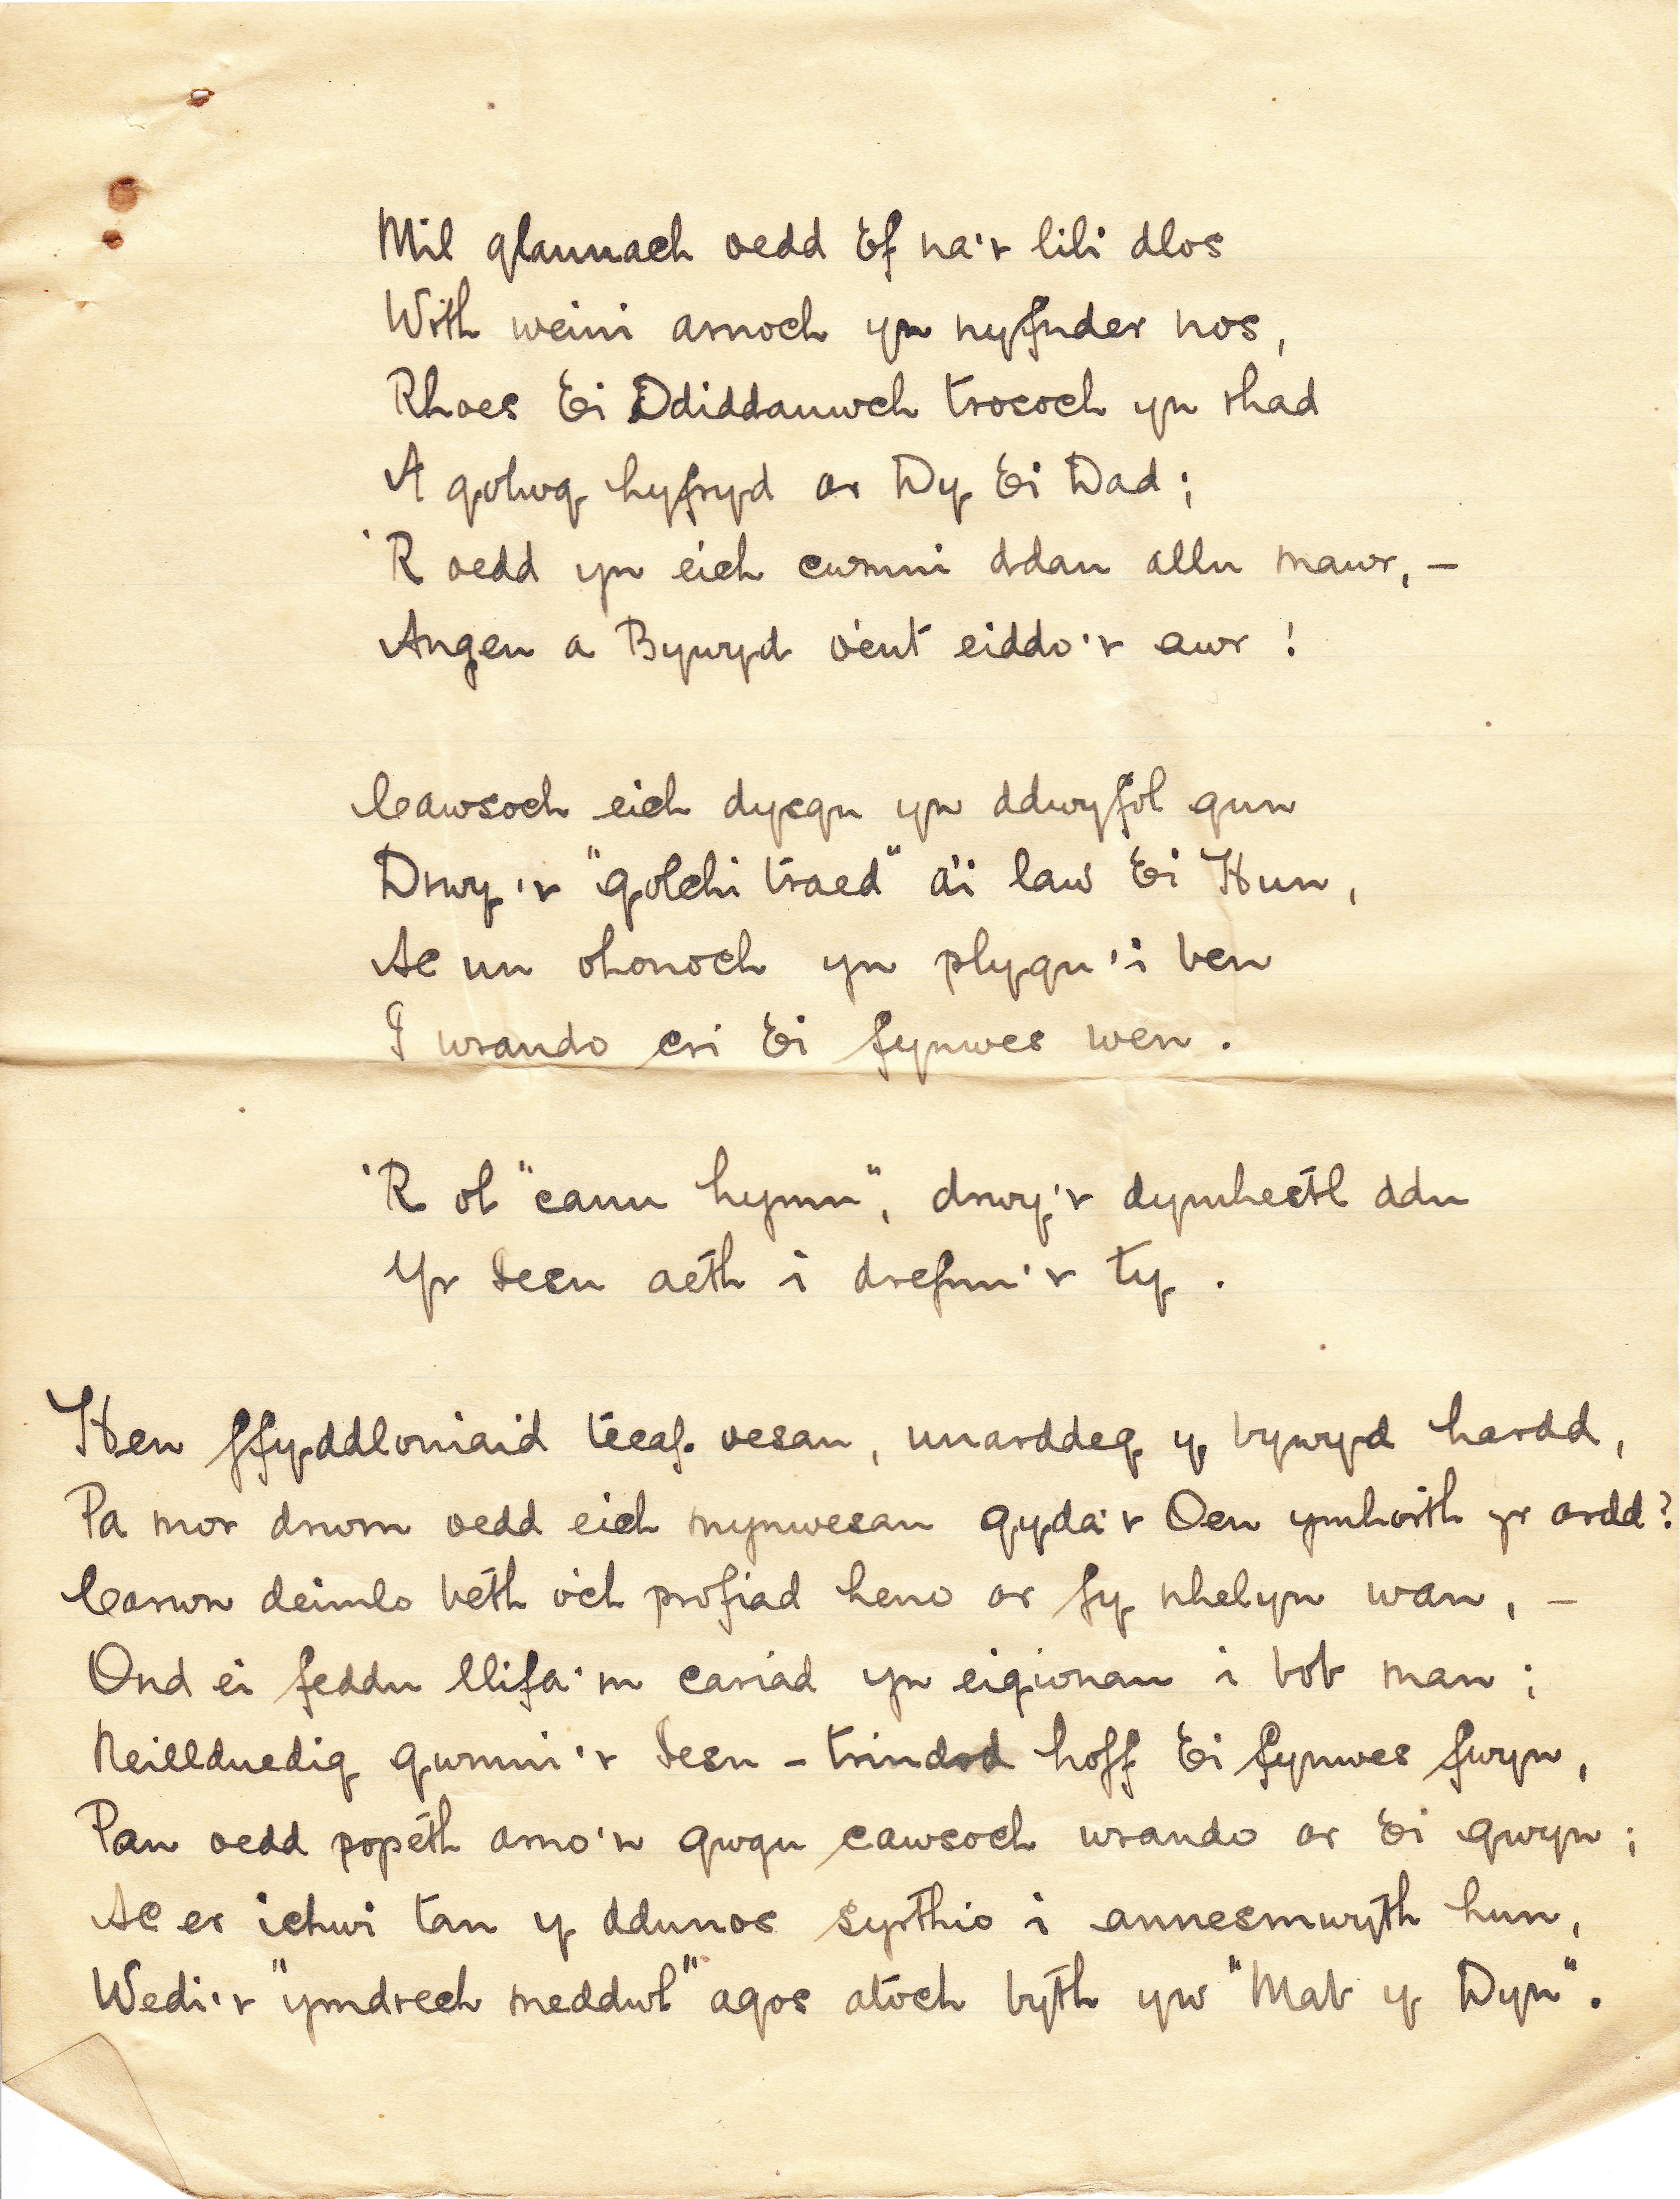 Mil glannach oedd Ef na'r lili dlos
Wrth weini arnoch yn nyfnder nos,
Rhoes Ei Ddiddanwch trosoch yn rhad
A golwg hyfryd ar Dŷ Ei Dad;
'R oedd yn eich cwmni ddau allu mawr, –
Angeu a Bywyd o'ent eiddo'r awr!
Cawsoch eich dysgu yn ddwyfol gun
Drwy'r "golchi traed" a'i law Ei Hun,
Ac un ohonoch yn plygu'i ben
I wrando cri Ei fynwes wen.
'R ol "canu hymn", drwy'r dymhestl ddu
Yr Iesu aeth i drefnu'r ty.
Hen ffyddloniaid tecaf oesau, unarddeg y bywyd hardd,
Pa mor drwm oedd eich mynwesau gyda'r Oen ymhorth yr ardd?
Carwn deimlo beth o'ch profiad heno ar fy nhelyn wan, –
Ond ei feddu llifa'm cariad yn eigionau i bob man;
Neillduedig gwmni'r Iesu – trindod hoff Ei fynwes fwyn,
Pan oedd popeth arno'n gwgu cawsoch wrando ar Ei gwyn;
Ac er ichwi tan y ddunos syrthio i annesmwyth hun,
Wedi'r "ymdrech meddwl" agos atoch byth yw "Mab y Dyn".